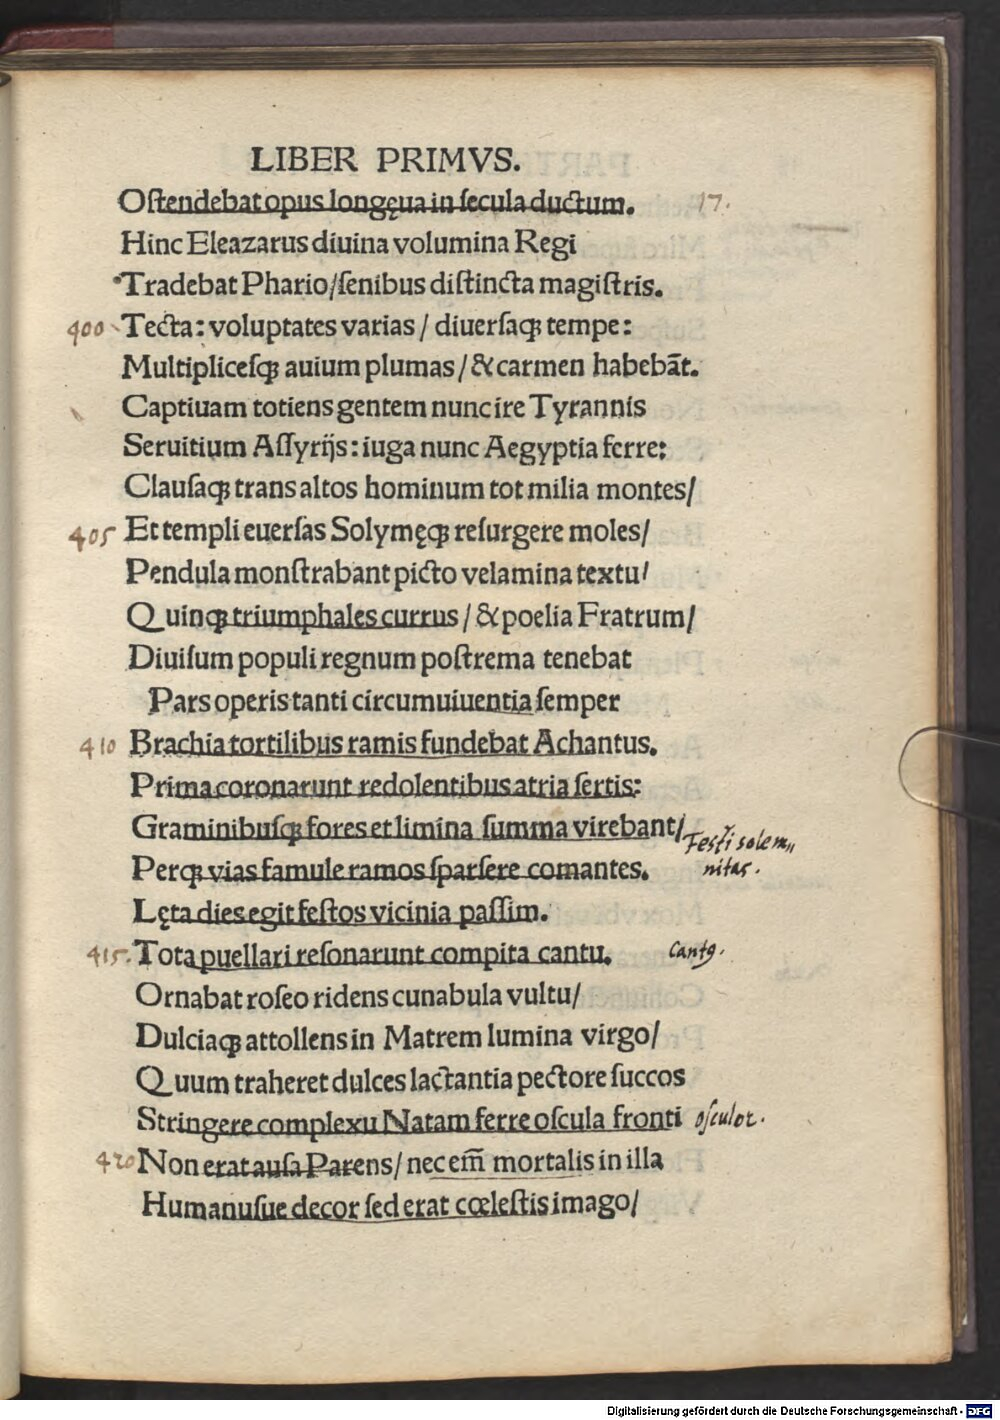 LIBER PRIMVS.
Oſtendebat opus longęua in ſecula ductum. 17.
Hinc Eleazarus diuina volumina Regi
Tradebat Phario/ſenibus diſtincta magiſtris.
400 Tecta: voluptates varias / diuerſaqꝫ tempe:
Multipliceſqꝫ auium plumas / & carmen habebāt.
Captiuam totiens gentem nunc ire Tyrannis
Seruitium Aſſyrijs: iuga nunc Aegyptia ferre:
Clauſaqꝫ trans altos hominum tot milia montes/
405 Et templi euerſas Solymęqꝫ reſurgere moles/
Pendula monſtrabant picto velamina textu/
Quinqꝫ triumphales currus / & poelia Fratrum/
Diuiſum populi regnum poſtrema tenebat
Pars operis tanti circumuiuentia ſemper
410 Brachia tortilibus ramis fundebat Achantus.
Prima coronarunt redolentibus atria ſertis:
Graminibuſqꝫ fores et limina ſumma virebant/ Festi solem„
Perqꝫ vias famule ramos ſparſere comantes. nitas.
Lęta dies egit feſtos vicinia paſſim.
415. Tota puellari reſonarunt compita cantu. Cantꝯ.
Ornabat roſeo ridens cunabula vultu/
Dulciaqꝫ attollens in Matrem lumina virgo/
Quum traheret dulces lactantia pectore ſuccos
Stringere complexu Natam ferre oſcula fronti oſculor.
420 Non erat auſa Parens/ nec em̄ mortalis in illa
Humanuſue decor ſed erat cœleſtis imago/
Digitalisierung gefördert durch die Deutsche Forschungsgemeinschaft - DFG